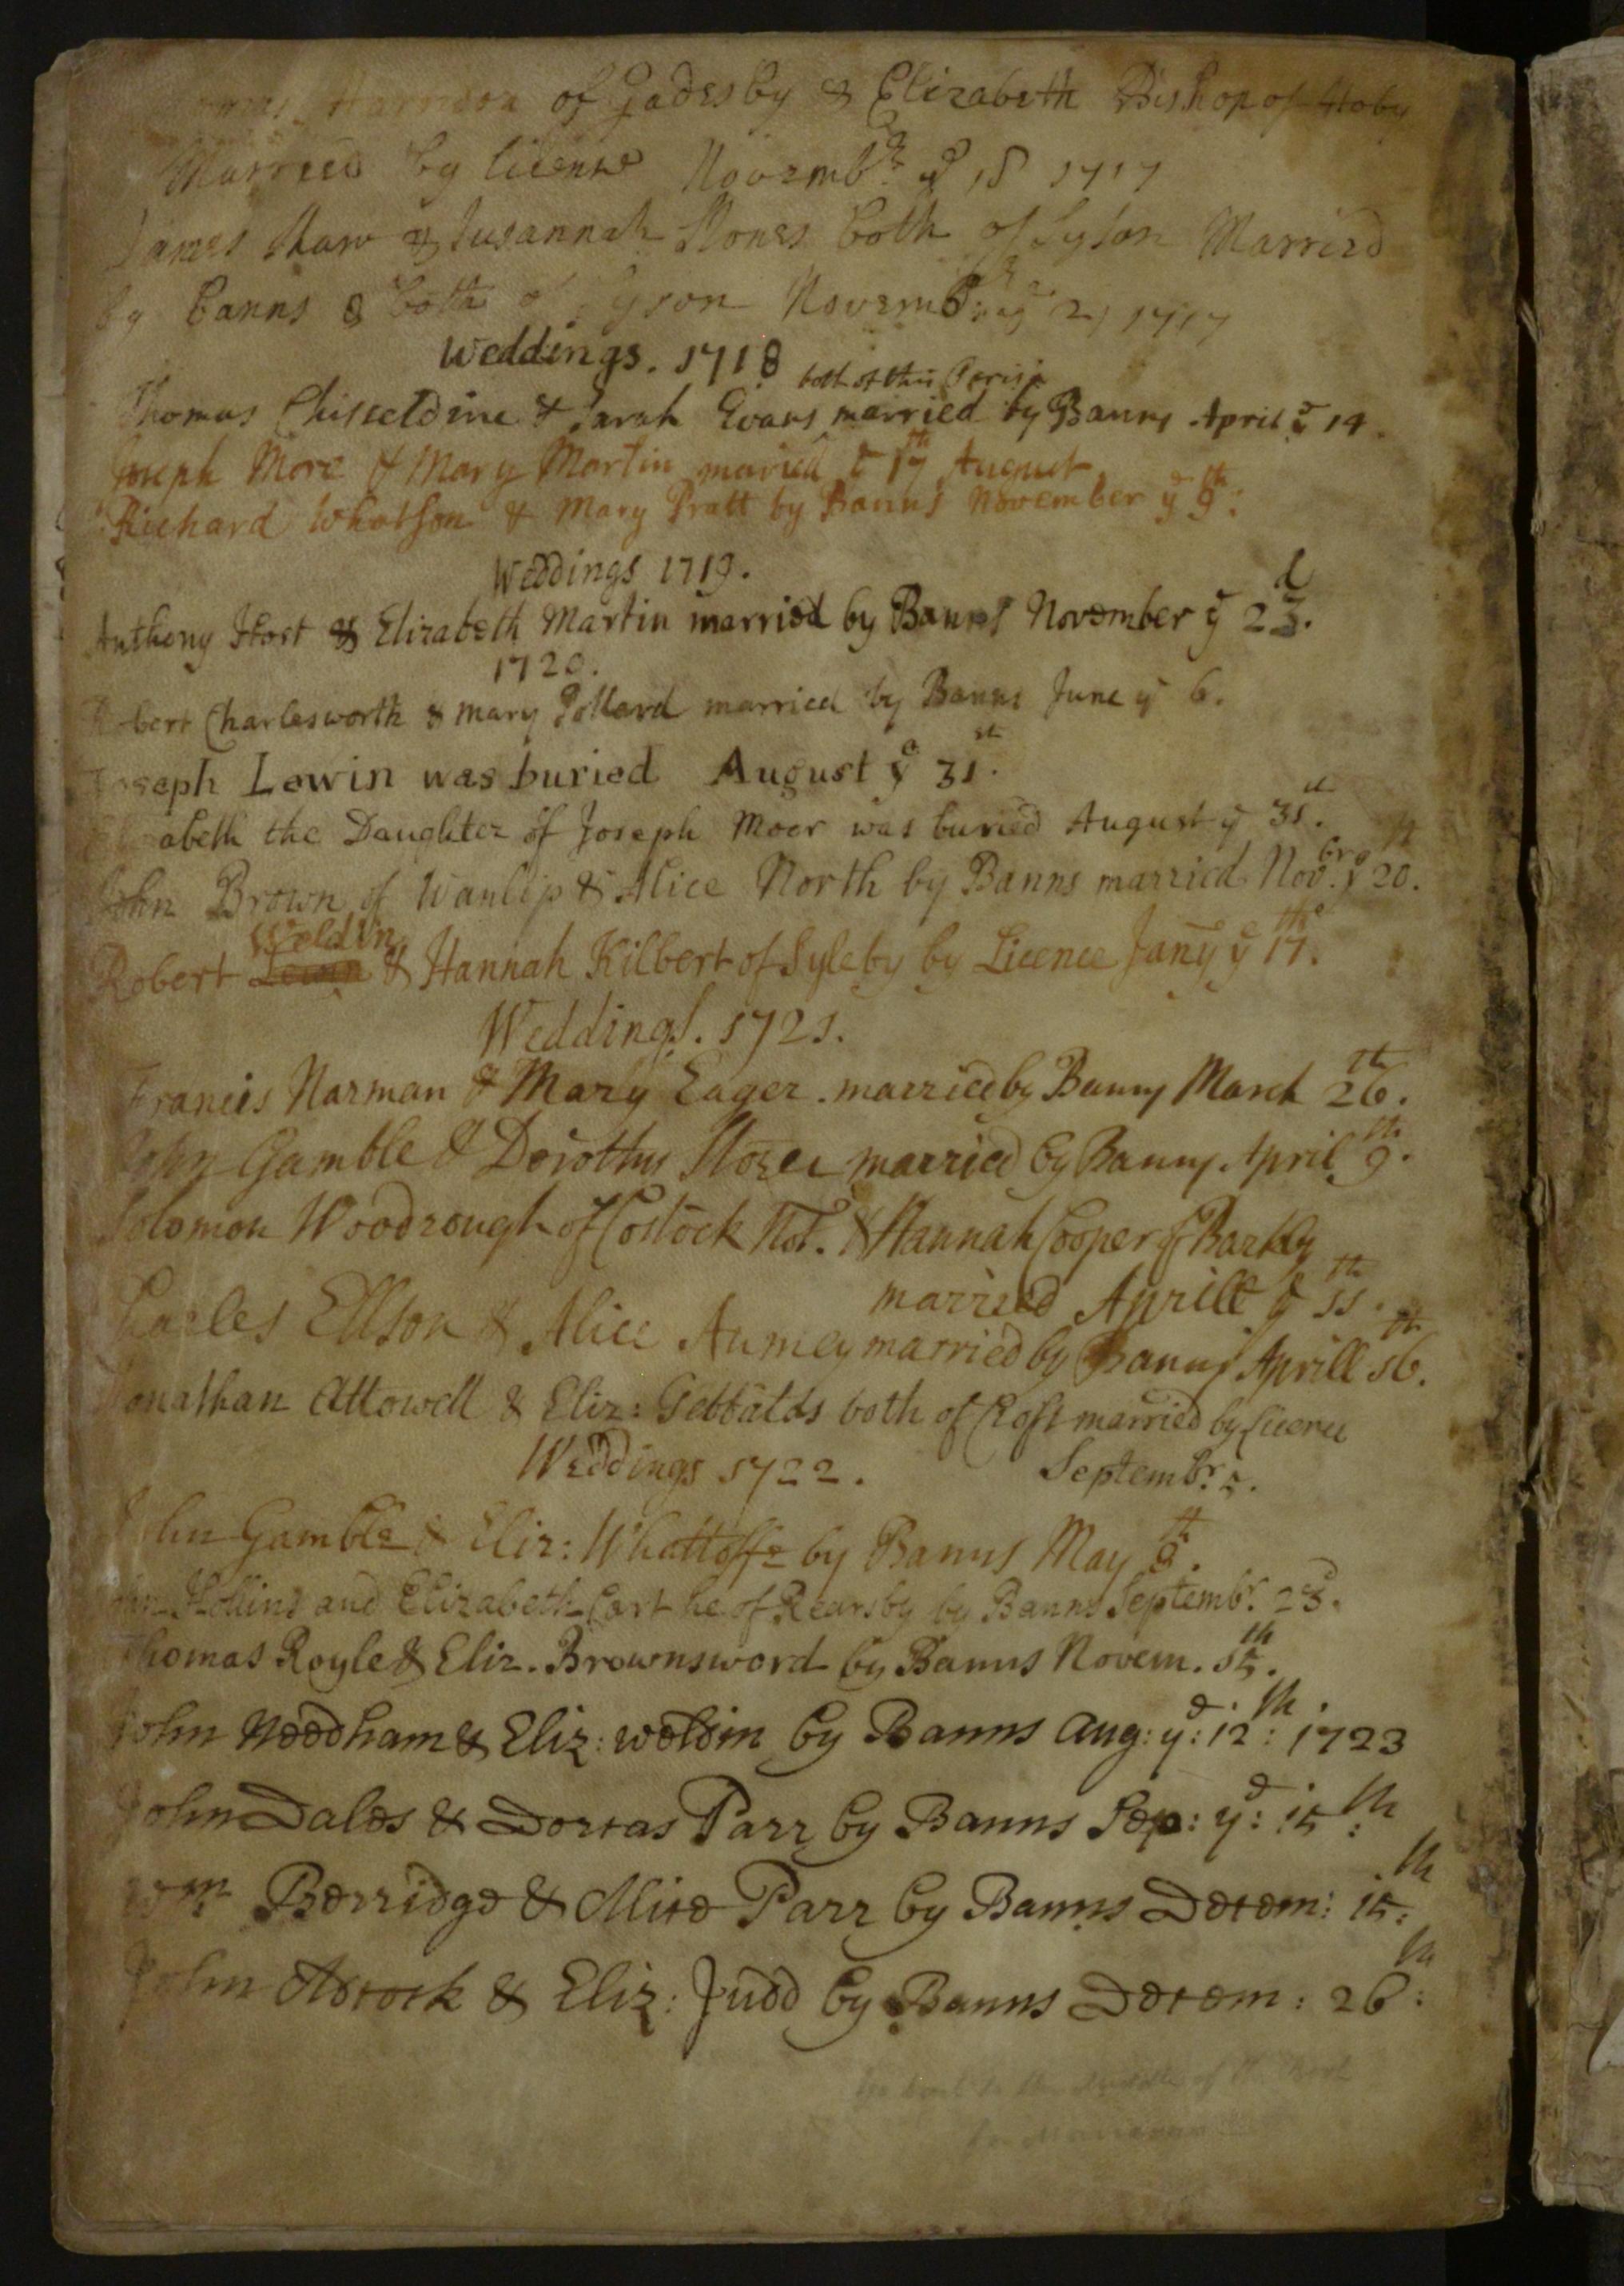 Harrison of Gadesby & Elizabeth Bishop of Hoby
Married by licenwe Novemb:r ye 18 1717
James Shaw & Susannah Stones both of Syson Married
by banns & both of Syson Novemb:r ye 21 1717
Weddings. 1718
both of this Parish
Thomas Chisseldine & Sarah Evans married by Banns April ye 14.
Joseph More & Mary Martin maried ye 17th August
Richard Whatson & Mary Pratt by Banns November ye 9th:
Weddings 1719.
Anthony Host & Elizabeth Martin married by Banns November ye 23d.
1720.
Robert Charlesworth & Mary Pollard married by Banns June ye 6.
Joseph Lewin was buried August ye 31st.
Elizabeth the Daughter of Joseph Moor was buried August ye 31st.
John Brown of Wanlip & Alice North by Banns married Novbr. ye 20th.
Weldin
Robert Lewin & Hannah Kilbert of Syleby by Licence Jany ye 17th.
Weddings. 1721.
Francis Norman & Mary Eager. married by Banns March 26th.
John Gamble & Dorothy married by Banns April 9th.
Solomon Woodrough of Costock Not. & Hannah Cooper of Barkby
married Aprill ye 11th.
Charles Ellson & Alice married by Banns Aprill 16th.
Jonathan Attowell & Eliz: both of Croft married by Licence
Septembr. 2.
Weddings 1722.
John Gamble & Eliz: Whattoffe by Banns May 8th.
John Hollins and Elizabeth Cart he of Rearsby by Banns Septembr. 23d.
Thomas Royle & Eliz. Brownsword by Banns Novem. 15th.
John Needham & Eliz: weldin by Banns Aug: ye: 12th: 1723
John Dales & Dorcas Parr by Banns Sep: ye: 15th:
Wm Berridge & Alice Parr by Banns Decem: 15th:
John Adcock & Eliz: Judd by Banns Decem: 26th: